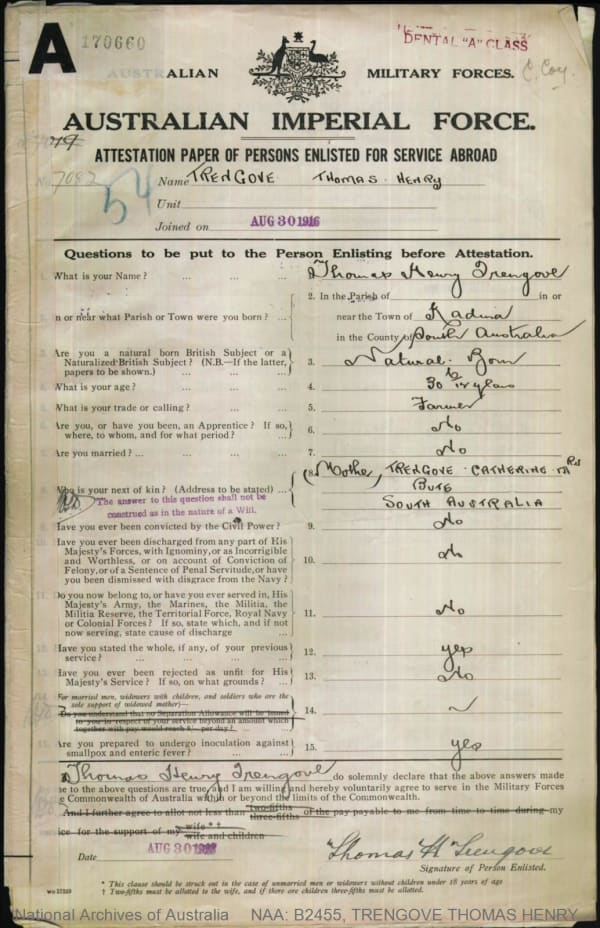 A 170660
DENTAL "A" CLASS
C. Coy.
AUSTRALIAN MILITARY FORCES.
AUSTRALIAN IMPERIAL FORCE.
ATTESTATION PAPER OF PERSONS ENLISTED FOR SERVICE ABROAD
No. 7082 Name TRENGOVE THOMAS HENRY
54
Unit
Joined on AUG 30 1916
Questions to be put to the Person Enlisting before Attestation.
What is your Name? ... ... ... Thomas Henry Trengove
2. In the Parish of in or
n or near what Parish or Town were you born? ... near the Town of Kadina
in the County of South Australia
Are you a natural born British Subject or a
Naturalized British Subject? (N.B.—If the latter, 3. Natural Born
papers to be shown.) ... ...
What is your age? ... ... ... 4. 30 years
What is your trade or calling? ... ... 5. Farmer
Are you, or have you been, an Apprentice? If so, 6. No
where, to whom, and for what period? ...
Are you married? ... ... ... 7. No
8. Mother, TRENGOVE CATHERINE MRS
Who is your next of kin? (Address to be stated) ... BUTE
The answer to this question shall not be
construed as in the nature of a Will. SOUTH AUSTRALIA
Have you ever been convicted by the Civil Power? 9. No
Have you ever been discharged from any part of His
Majesty's Forces, with Ignominy, or as Incorrigible
and Worthless, or on account of Conviction of 10. No
Felony, or of a Sentence of Penal Servitude, or have
you been dismissed with disgrace from the Navy?
Do you now belong to, or have you ever served in, His
Majesty's Army, the Marines, the Militia, the
Militia Reserve, the Territorial Force, Royal Navy 11. No
or Colonial Forces? If so, state which, and if not
now serving, state cause of discharge ...
Have you stated the whole, if any, of your previous 12. yes
service? ... ... ... ...
Have you ever been rejected as unfit for His 13. No
Majesty's Service? If so, on what grounds? ...
For married men, widowers with children, and soldiers who are the
sole support of widowed mother)—
Do you understand that no Separation Allowance will be issued 14. ~
to you in respect of your service beyond an amount which
together with pay would reach 8/- per day?
Are you prepared to undergo inoculation against 15. yes
smallpox and enteric fever? ... ...
Thomas Henry Trengove do solemnly declare that the above answers made
me to the above questions are true, and I am willing and hereby voluntarily agree to serve in the Military Forces
e Commonwealth of Australia within or beyond the limits of the Commonwealth.
And I further agree to allot not less than two-fifths three-fifths of the pay payable to me from time to time during my
ice for the support of my wife* † wife and children
Date AUG 30 Thomas H Trengove
Signature of Person Enlisted.
* This clause should be struck out in the case of unmarried men or widowers without children under 18 years of age
† Two-fifths must be allotted to the wife, and if there are children three-fifths must be allotted.
National Archives of Australia NAA: B2455, TRENGOVE THOMAS HENRY